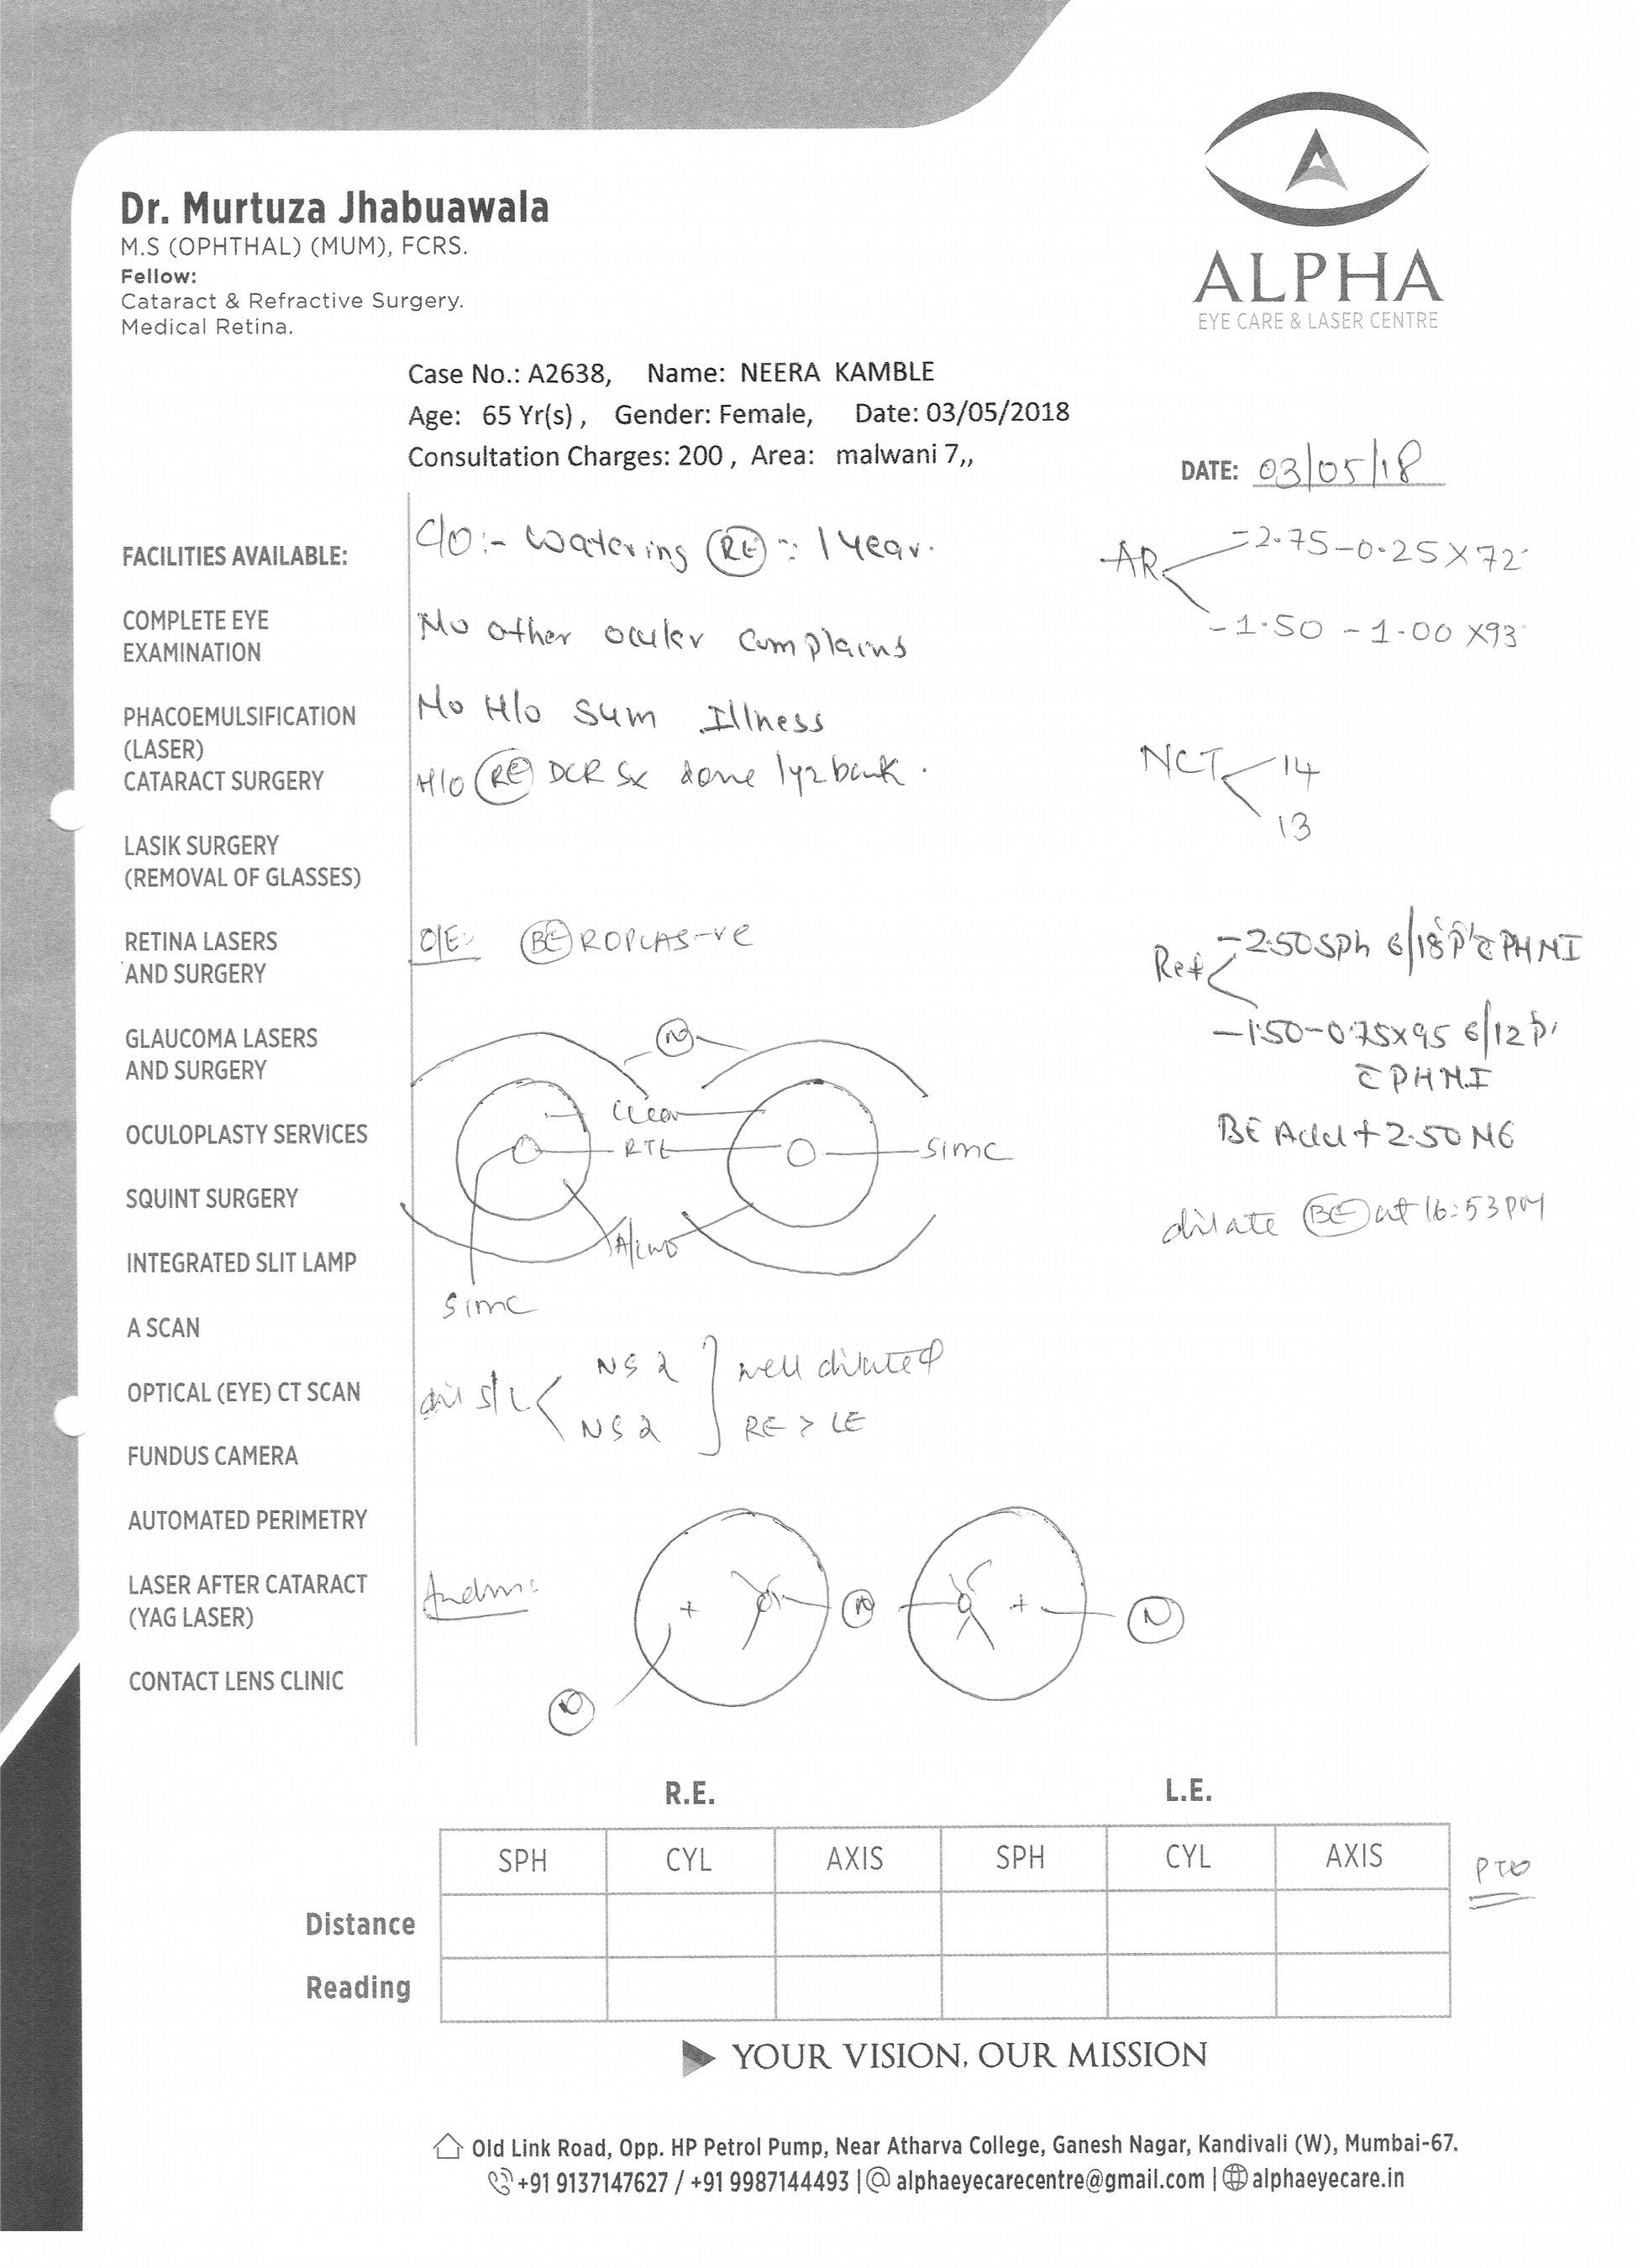 Dr. Murtuza Jhabuawala
M.S (OPHTHAL) (MUM), FCRS.
Fellow:
Cataract & Refractive Surgery.
Medical Retina.
ALPHA
EYE CARE & LASER CENTRE
Case No.: A2638, Name: NEERA KAMBLE
Age: 65 Yr(s) , Gender: Female, Date: 03/05/2018
Consultation Charges: 200 , Area: malwani 7,,
DATE: 03/05/18
FACILITIES AVAILABLE:
COMPLETE EYE
EXAMINATION
PHACOEMULSIFICATION
(LASER)
CATARACT SURGERY
LASIK SURGERY
(REMOVAL OF GLASSES)
RETINA LASERS
AND SURGERY
GLAUCOMA LASERS
AND SURGERY
OCULOPLASTY SERVICES
SQUINT SURGERY
INTEGRATED SLIT LAMP
A SCAN
OPTICAL (EYE) CT SCAN
FUNDUS CAMERA
AUTOMATED PERIMETRY
LASER AFTER CATARACT
(YAG LASER)
CONTACT LENS CLINIC
C/O:- Watering RE 1 Year.
No other ocular complains
No H/o Illness
H/O RE DCR Sx done 1yr back.
O/E: BE ROPLAS -ve
N
clear
RTL
SIMC
SIMC
dil S/L NS 2 well dilated
NS 2 RE > LE
N N
N
AR -2.75 -0.25 X 72
-1.50 -1.00 X93
NCT 14
13
Ref -2.50 Sph 6/18P c̄ PHNI
-1.50-0.75x95 6/12P
c̄ PHNI
BE Add +2.50 N6
dilate BE at 16:53PM
R.E. L.E.
SPH CYL AXIS SPH CYL AXIS
PTO
Distance
Reading
YOUR VISION, OUR MISSION
Old Link Road, Opp. HP Petrol Pump, Near Atharva College, Ganesh Nagar, Kandivali (W), Mumbai-67.
+91 9137147627 / +91 9987144493 | @ alphaeyecarecentre@gmail.com | alphaeyecare.in